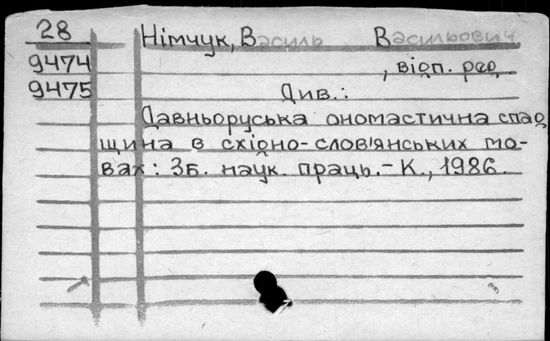 28 Німчук, Василь Васильович
9474 , відп. ред.
9475 Див.:
Давньоруська ономастична спад
щина в східно-слов'янських мо-
вах: Зб. наук. праць.-К., 1986.